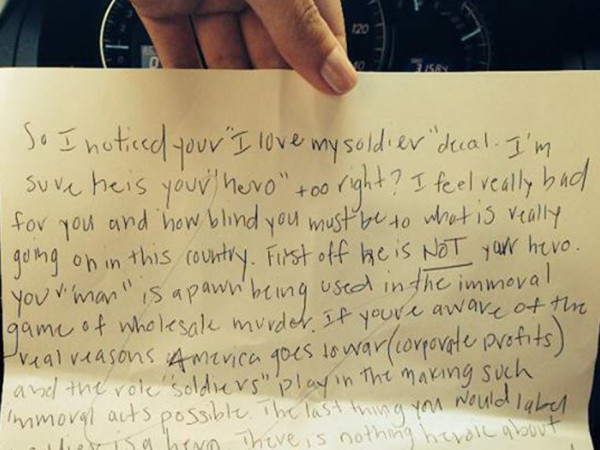 120
3158
So I noticed your "I love my soldier" decal. I'm
sure he is your "hero" too right? I feel really bad
for you and how blind you must be to what is really
going on in this country. First off he is NOT your hero.
your "man" is a pawn being used in the immoral
game of wholesale murder. If you're aware of the
real reasons America goes to war (corporate profits)
and the role "soldiers" play in the making such
immoral acts possible. The last thing you would label
is a hero. There is nothing heroic about